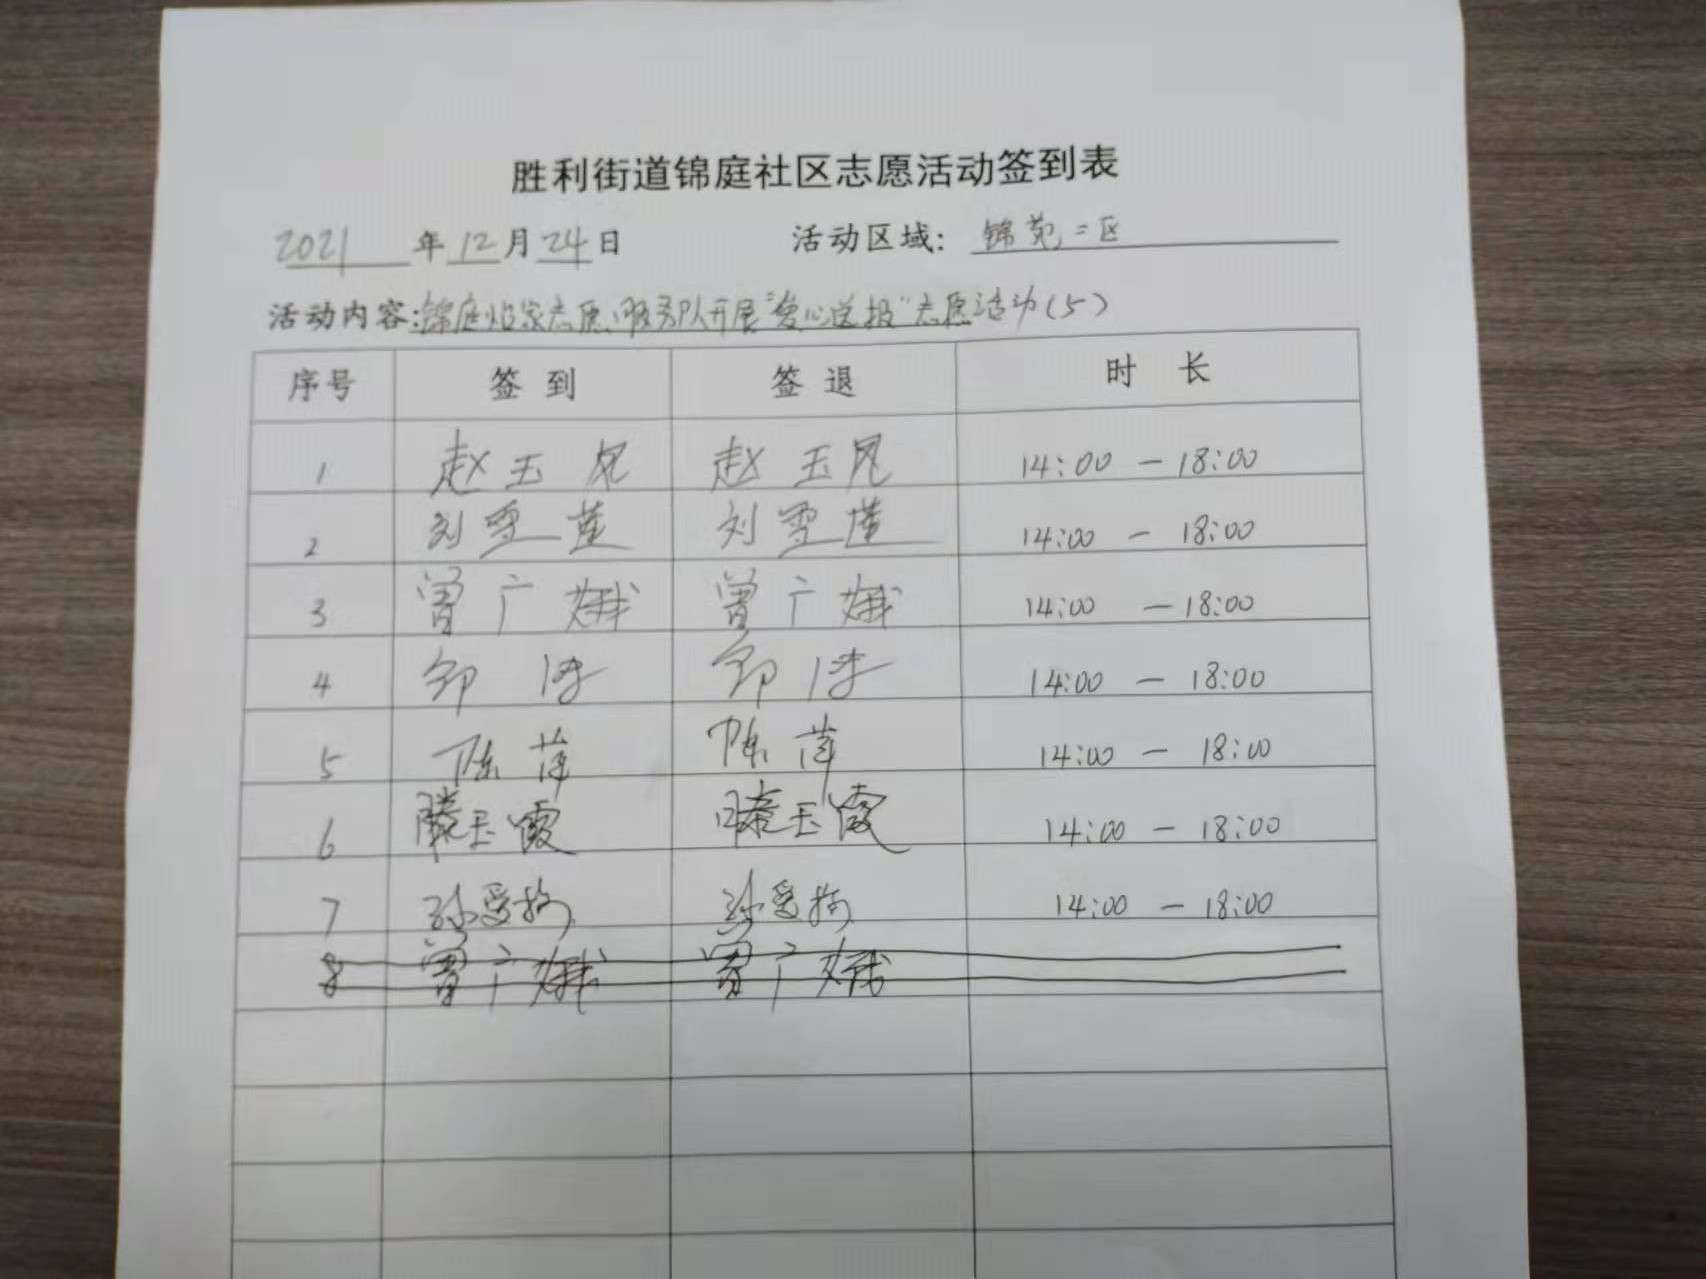 胜利街道锦庭社区志愿活动签到表
2021年12月24日 活动区域: 锦苑二区
活动内容:锦庭炤家志愿服务队开展"爱心送报"志愿活动(5)
序号 签到 签退 时长
1 赵玉凤 赵玉凤 14:00 — 18:00
2 刘雪莲 刘雪莲 14:00 — 18:00
3 曾广娥 曾广娥 14:00 — 18:00
4 邹涛 邹涛 14:00 — 18:00
5 陈萍 陈萍 14:00 — 18:00
6 滕玉霞 滕玉霞 14:00 — 18:00
7 孙爱梅 孙爱梅 14:00 — 18:00
8 曾广娥 曾广娥